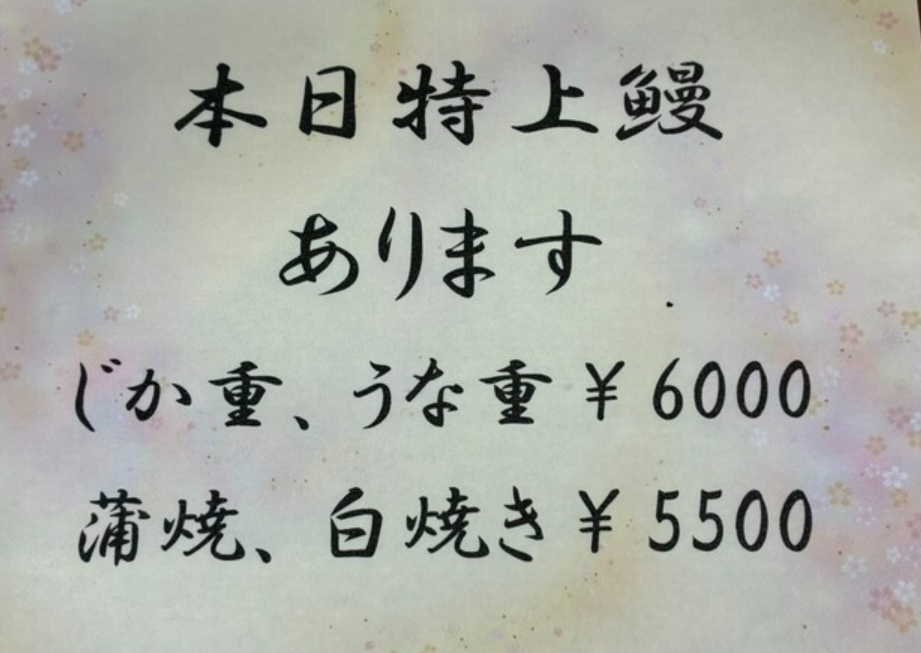 本日特上鰻
あります
じか重、うな重￥6000
蒲焼、白焼き￥5500